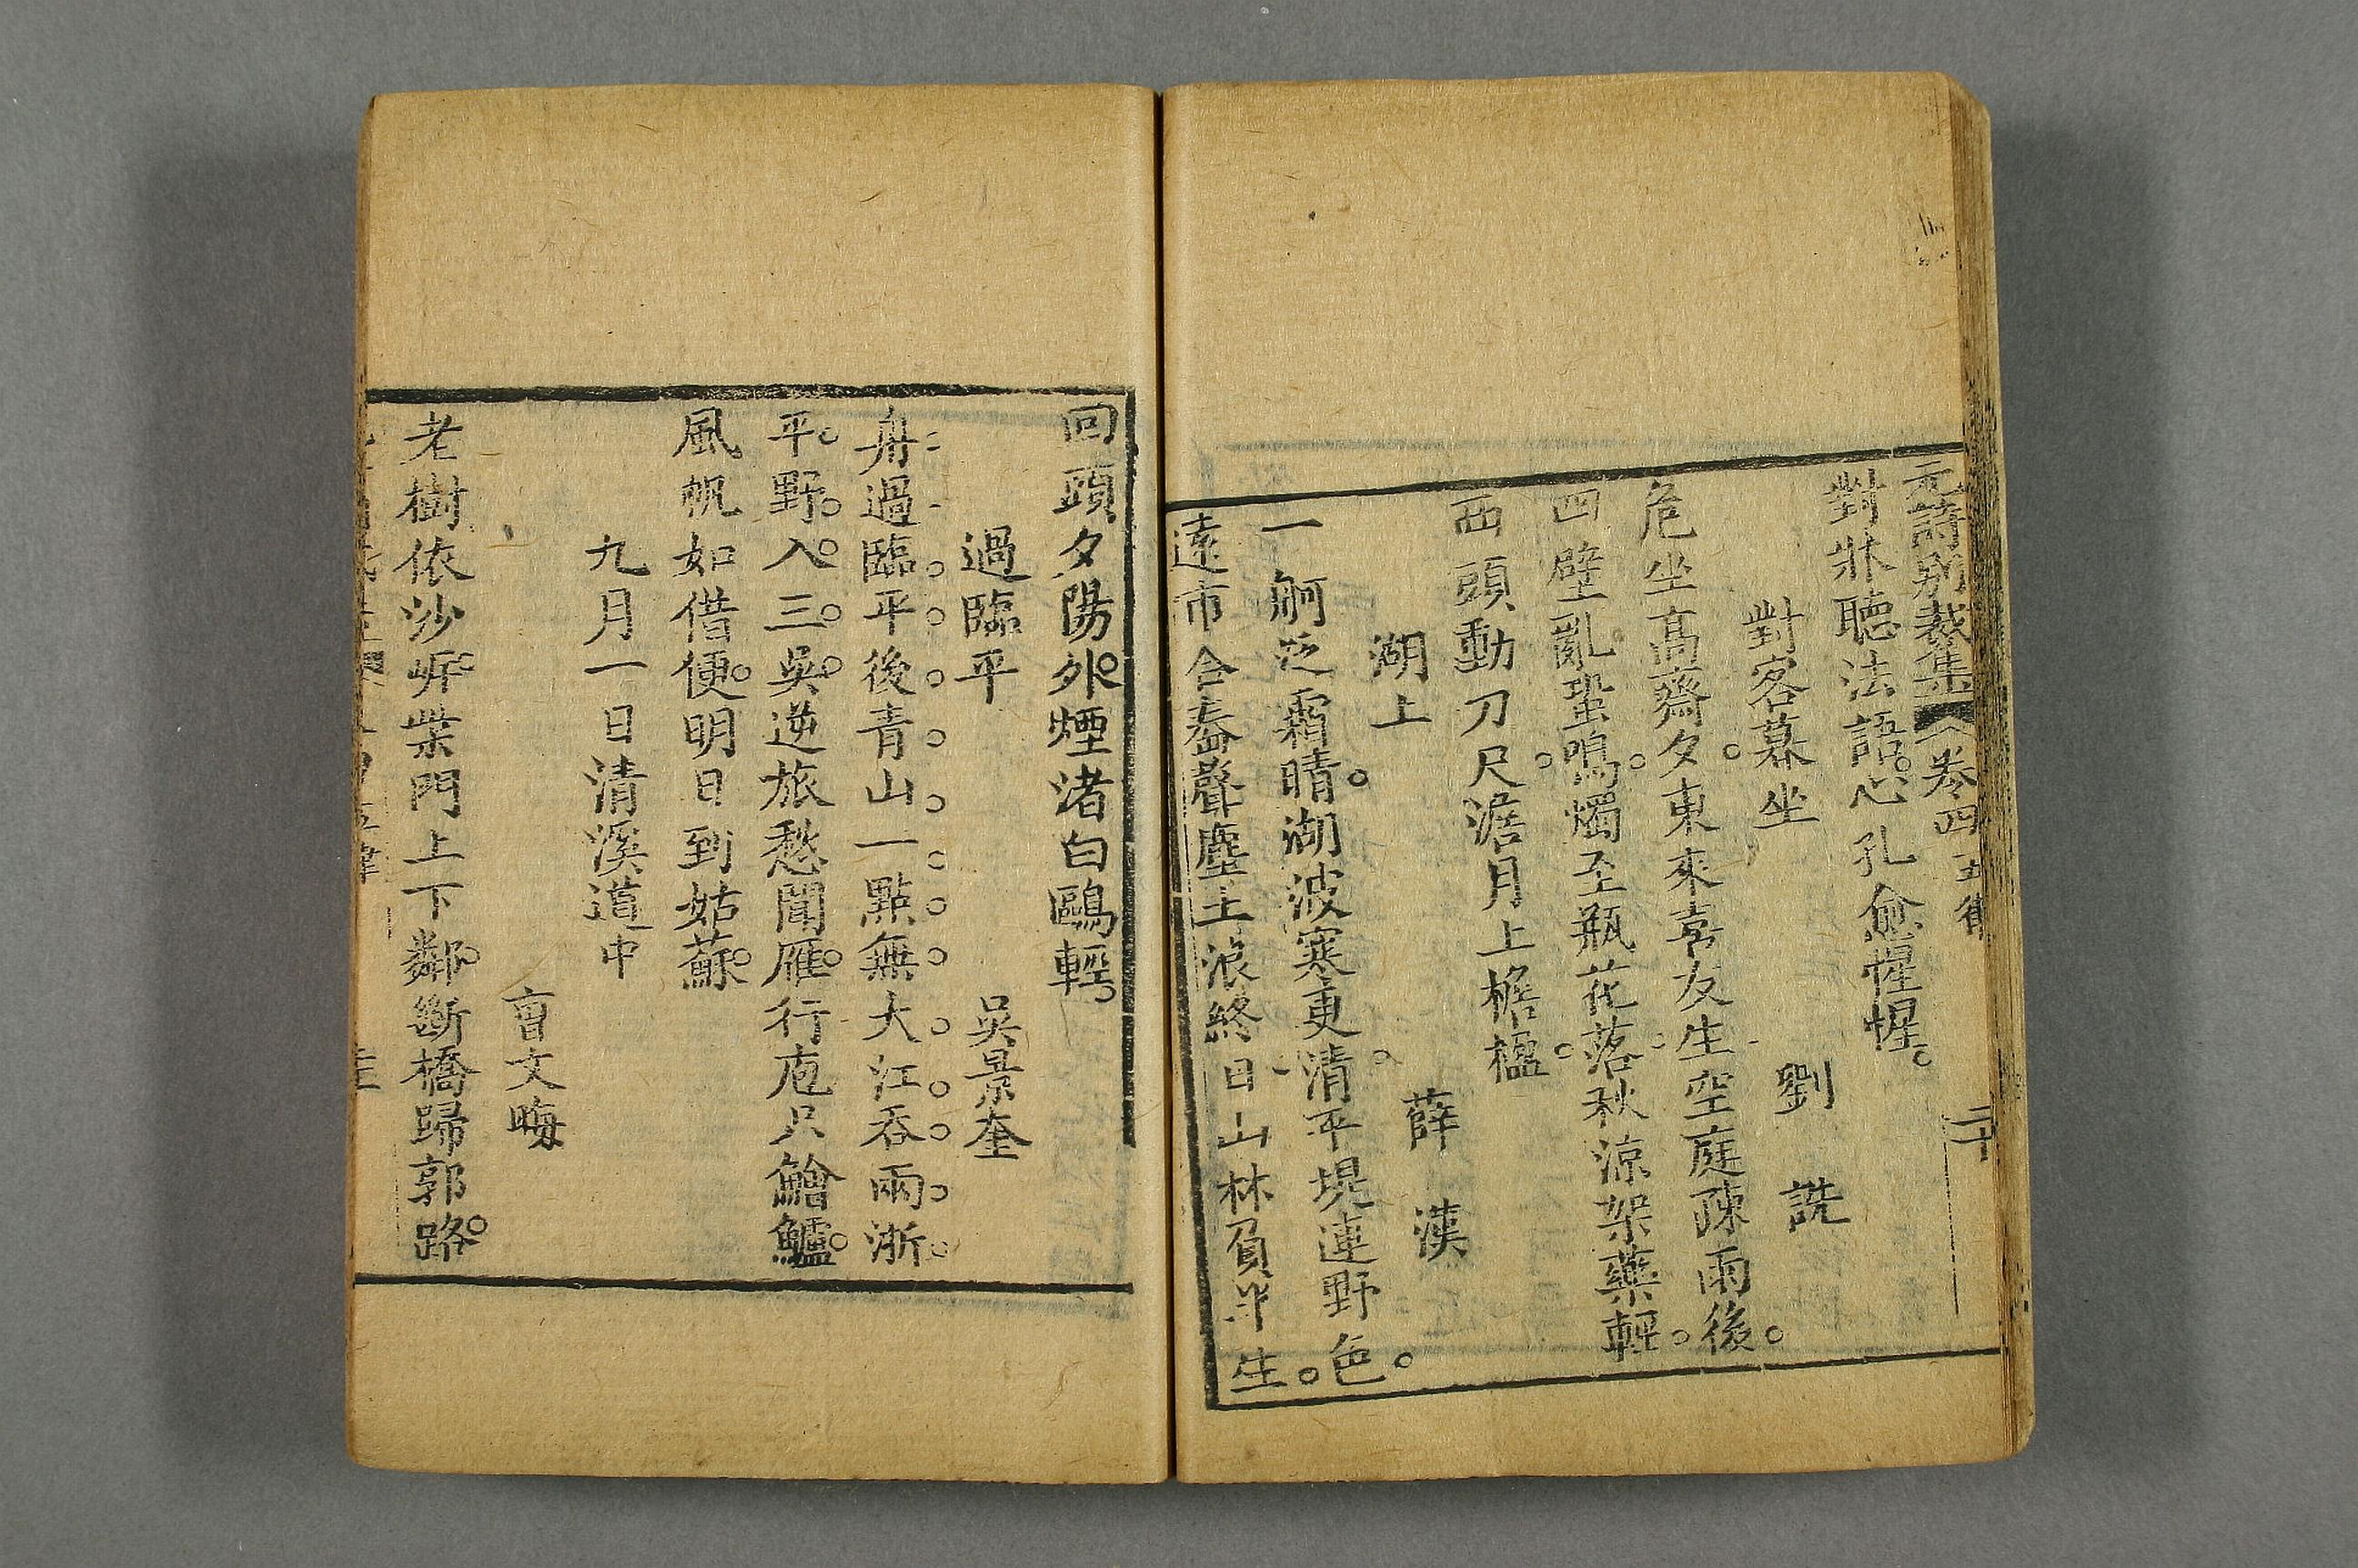 元詩別裁集 卷四 五律 二十
對牀聽法語。心孔愈惺惺。
對客暮坐 劉詵
危坐高齋夕。東來喜友生。空庭陳雨後。
四壁亂蛩鳴。燭至瓶花落。秋涼架藥輕。
西頭動刀尺。澹月上檐楹。
湖上 薛漢
一舸泛霜晴。湖波寒更清。平堤連野色。
遠市合春聲。塵土浪終日。山林負半生。
回頭夕陽外。煙渚白鷗輕。
過臨平 吳景奎
舟過臨平後。青山一點無。大江吞兩浙。
平野入三吳。逆旅愁聞雁。行庖只鱠鱸。
風帆如借便。明日到姑蘇。
九月一日清溪道中
曾文晦
老樹依沙㟁。柴門上下鄰。斷橋歸郭路。